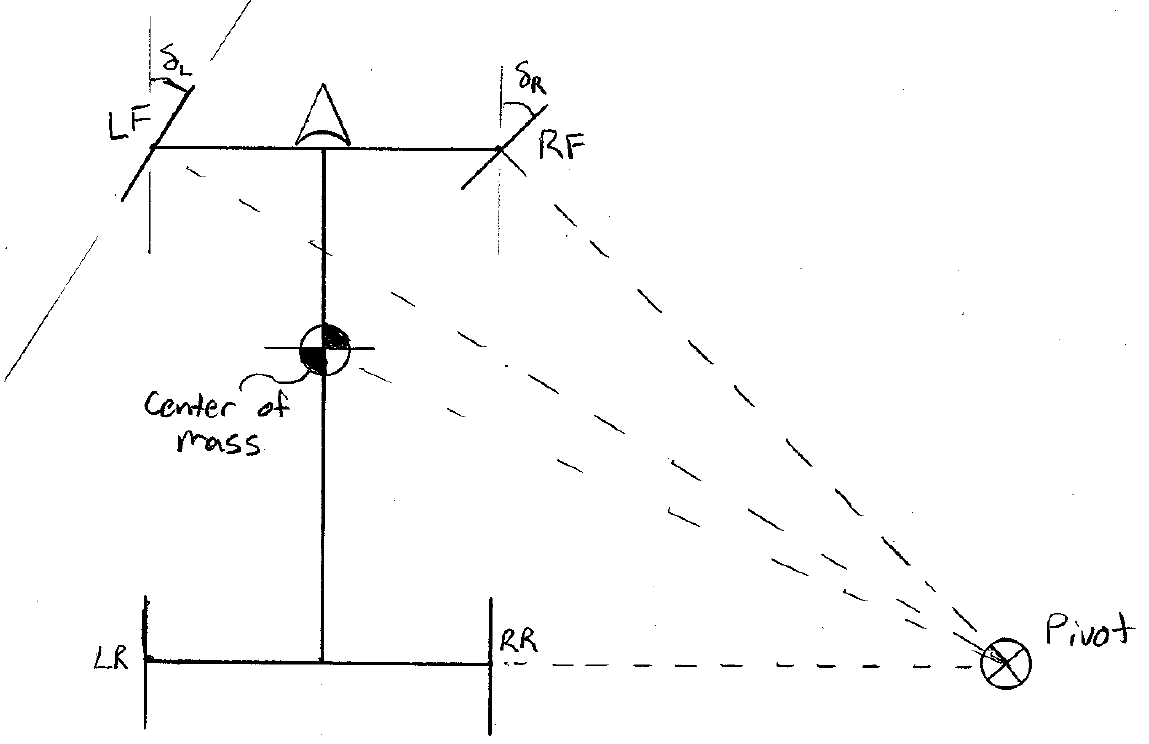 δL
δR
LF
RF
Center of
mass
LR
RR
Pivot